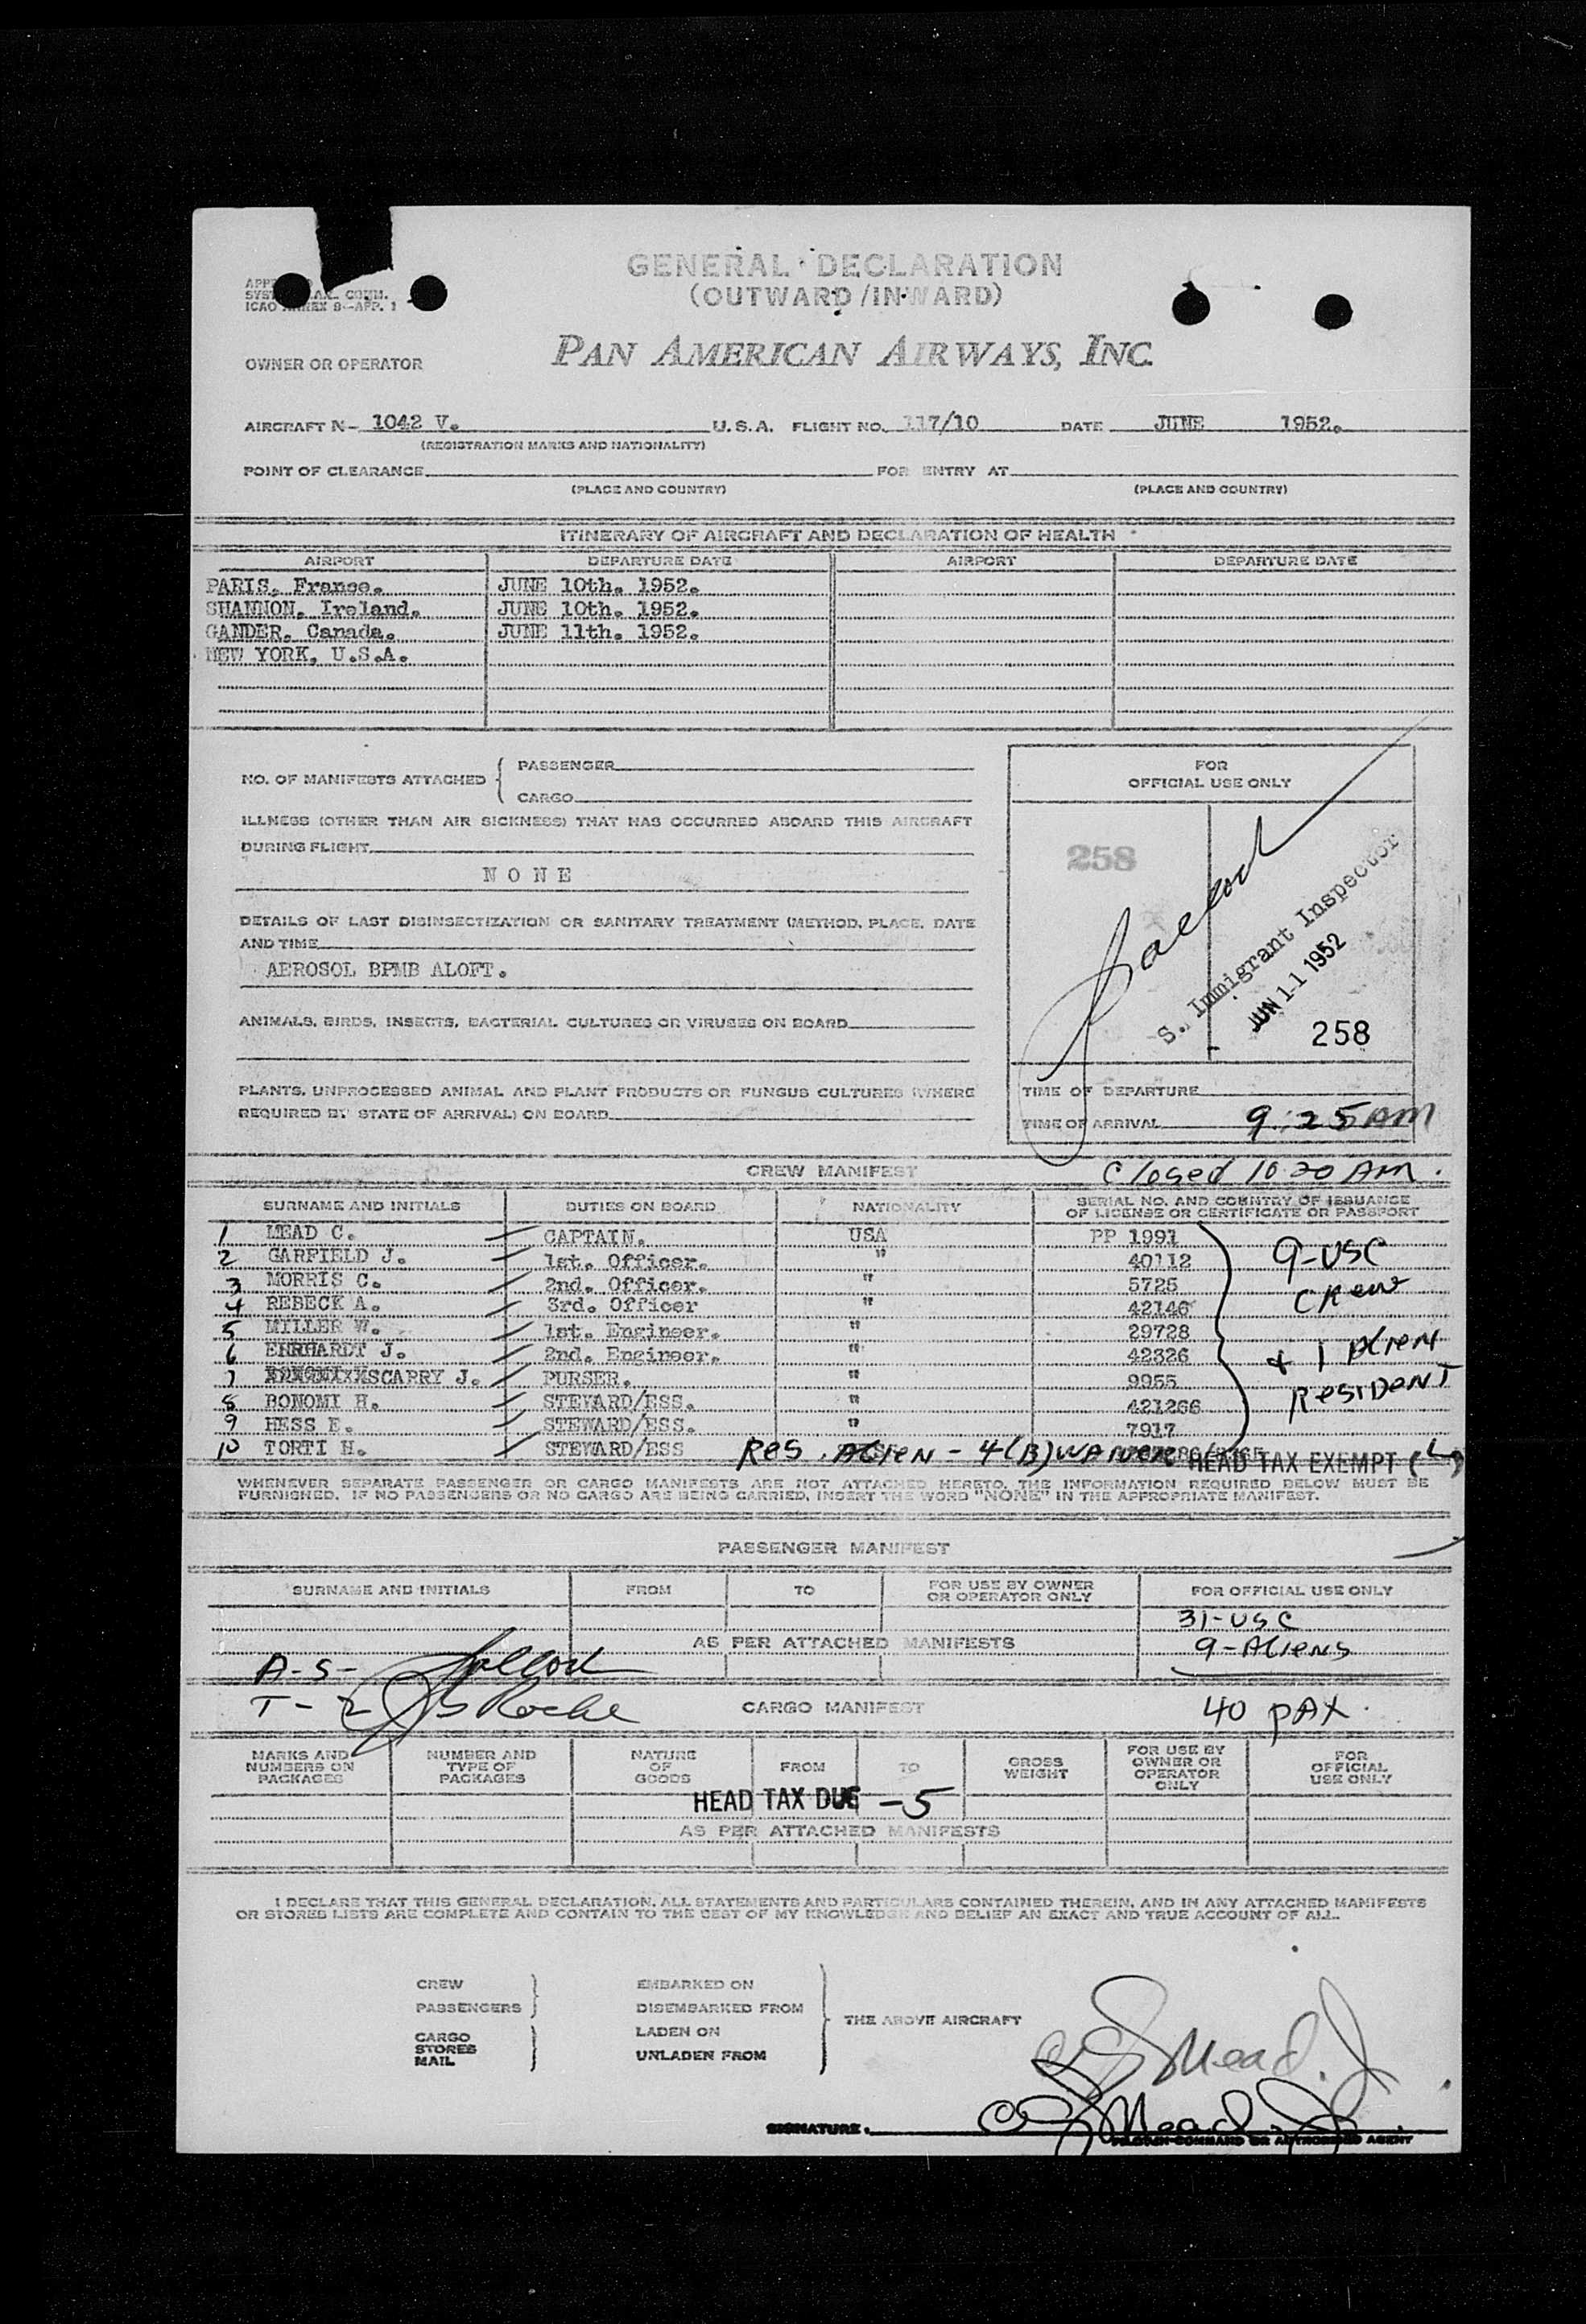 GENERAL DECLARATION
(OUTWARD/INWARD)
COMM.
ICAO ANNEX 9-APP. 1
OWNER OR OPERATOR
PAN AMERICAN AIRWAYS, INC.
AIRCRAFT N- 1042 V. U.S.A. FLIGHT NO. 117/10 DATE JUNE 1952.
(REGISTRATION MARKS AND NATIONALITY)
POINT OF CLEARANCE FOR ENTRY AT
(PLACE AND COUNTRY) (PLACE AND COUNTRY)
ITINERARY OF AIRCRAFT AND DECLARATION OF HEALTH
AIRPORT DEPARTURE DATE AIRPORT DEPARTURE DATE
PARIS, France. JUNE 10th. 1952.
SHANNON, Ireland. JUNE 10th. 1952.
GANDER, Canada. JUNE 11th. 1952.
NEW YORK, U.S.A.
NO. OF MANIFESTS ATTACHED { PASSENGER
CARGO
ILLNESS (OTHER THAN AIR SICKNESS) THAT HAS OCCURRED ABOARD THIS AIRCRAFT
DURING FLIGHT
N O N E
DETAILS OF LAST DISINSECTIZATION OR SANITARY TREATMENT (METHOD, PLACE, DATE
AND TIME
AEROSOL BPMB ALOFT.
ANIMALS, BIRDS, INSECTS, BACTERIAL CULTURES OR VIRUSES ON BOARD
PLANTS, UNPROCESSED ANIMAL AND PLANT PRODUCTS OR FUNGUS CULTURES (WHERE
REQUIRED BY STATE OF ARRIVAL) ON BOARD
FOR
OFFICIAL USE ONLY
258
S. Immigrant Inspector
JUN 11 1952
258
TIME OF DEPARTURE
TIME OF ARRIVAL 9:25 AM
CREW MANIFEST Closed 10 20 AM.
SURNAME AND INITIALS DUTIES ON BOARD NATIONALITY SERIAL NO. AND COUNTRY OF ISSUANCE
OF LICENSE OR CERTIFICATE OR PASSPORT
1 MEAD C. CAPTAIN. USA PP 1991
2 GARFIELD J. 1st. Officer. " 40112
3 MORRIS C. 2nd. Officer. " 5725
4 REBECK A. 3rd. Officer " 42146
5 MILLER W. 1st. Engineer. " 29728
6 EHRHARDT J. 2nd. Engineer. " 42326
7 SCARRY J. PURSER. " 9955
8 BONOMI H. STEWARD/ESS. " 421266
9 HESS E. STEWARD/ESS. " 7917
10 TORTI H. STEWARD/ESS Res. Alien - 4(B) WAIVER HEAD TAX EXEMPT
9-USC
Crew
+ 1 Alien
Resident
WHENEVER SEPARATE PASSENGER OR CARGO MANIFESTS ARE NOT ATTACHED HERETO, THE INFORMATION REQUIRED BELOW MUST BE
FURNISHED. IF NO PASSENGERS OR NO CARGO ARE BEING CARRIED, INSERT THE WORD "NONE" IN THE APPROPRIATE MANIFEST.
PASSENGER MANIFEST
SURNAME AND INITIALS FROM TO FOR USE BY OWNER
OR OPERATOR ONLY FOR OFFICIAL USE ONLY
31-USC
AS PER ATTACHED MANIFESTS 9-Aliens
A-S-
T-2 Roche CARGO MANIFEST 40 pax.
MARKS AND
NUMBERS ON
PACKAGES NUMBER AND
TYPE OF
PACKAGES NATURE
OF
GOODS FROM TO GROSS
WEIGHT FOR USE BY
OWNER OR
OPERATOR
ONLY FOR
OFFICIAL
USE ONLY
HEAD TAX DUE -5
AS PER ATTACHED MANIFESTS
I DECLARE THAT THIS GENERAL DECLARATION, ALL STATEMENTS AND PARTICULARS CONTAINED THEREIN, AND IN ANY ATTACHED MANIFESTS
OR STORED LISTS ARE COMPLETE AND CONTAIN TO THE BEST OF MY KNOWLEDGE AND BELIEF AN EXACT AND TRUE ACCOUNT OF ALL.
CREW EMBARKED ON
PASSENGERS DISEMBARKED FROM
THE ABOVE AIRCRAFT
CARGO LADEN ON
STORES
MAIL UNLADEN FROM
Mead Jr
SIGNATURE. Mead Jr
PILOT-IN-COMMAND OR AUTHORIZED AGENT